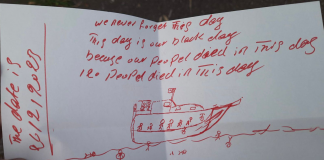 we never forget this day
This day is our black day
becuse our peopel died in This day
120 peopel died in This day
The date is
26/2/2023